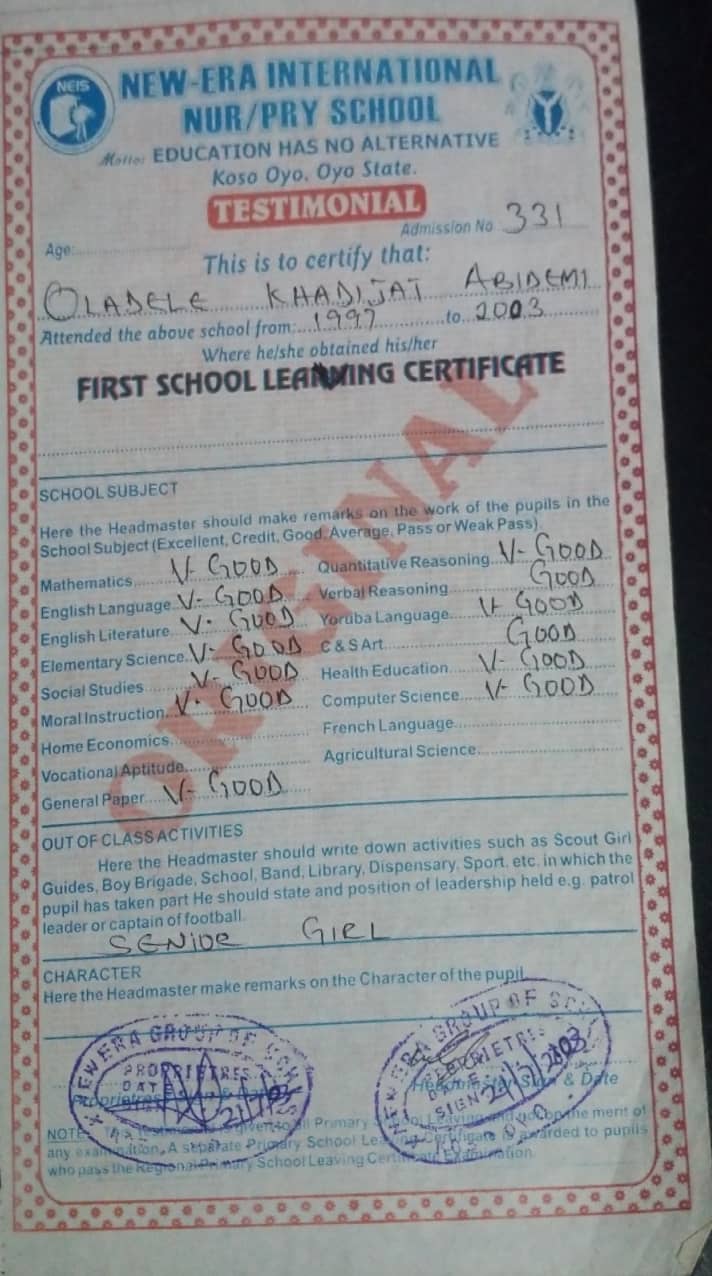 NEIS
NEW-ERA INTERNATIONAL
NUR/PRY SCHOOL
Motto: EDUCATION HAS NO ALTERNATIVE
Koso Oyo, Oyo State.
TESTIMONIAL
Admission No 331
Age:
This is to certify that:
OLADELE KHADIJAT ABIDEMI
Attended the above school from: 1997 to 2003
Where he/she obtained his/her
FIRST SCHOOL LEARNING CERTIFICATE
ORIGINAL
SCHOOL SUBJECT
Here the Headmaster should make remarks on the work of the pupils in the
School Subject (Excellent, Credit, Good, Average, Pass or Weak Pass).
Mathematics V- GOOD Quantitative Reasoning V- GOOD
English Language V- GOOD Verbal Reasoning GOOD
English Literature V. GOOD Yoruba Language V GOOD
Elementary Science V- GOOD C & S Art GOOD
Social Studies V- GOOD Health Education V- GOOD
Moral Instruction V. GOOD Computer Science V- GOOD
Home Economics French Language
Vocational Aptitude Agricultural Science
General Paper V- GOOD
OUT OF CLASS ACTIVITIES
Here the Headmaster should write down activities such as Scout Girl
Guides, Boy Brigade, School, Band, Library, Dispensary, Sport. etc. in which the
pupil has taken part He should state and position of leadership held e.g. patrol
leader or captain of football.
SENIOR GIRL
CHARACTER
Here the Headmaster make remarks on the Character of the pupil
NEW ERA GROUP OF SCH
PROPRIETRES
DATE
NEW ERA GROUP OF SCH
PROPRIETRES
DATE
SIGN
Sign & Date
NOTE: given to all Primary School Leaving the ment of
any examination, A separate Primary School Leaving Certificate is awarded to pupils
who pass the Regional Primary School Leaving Certificate Examination.